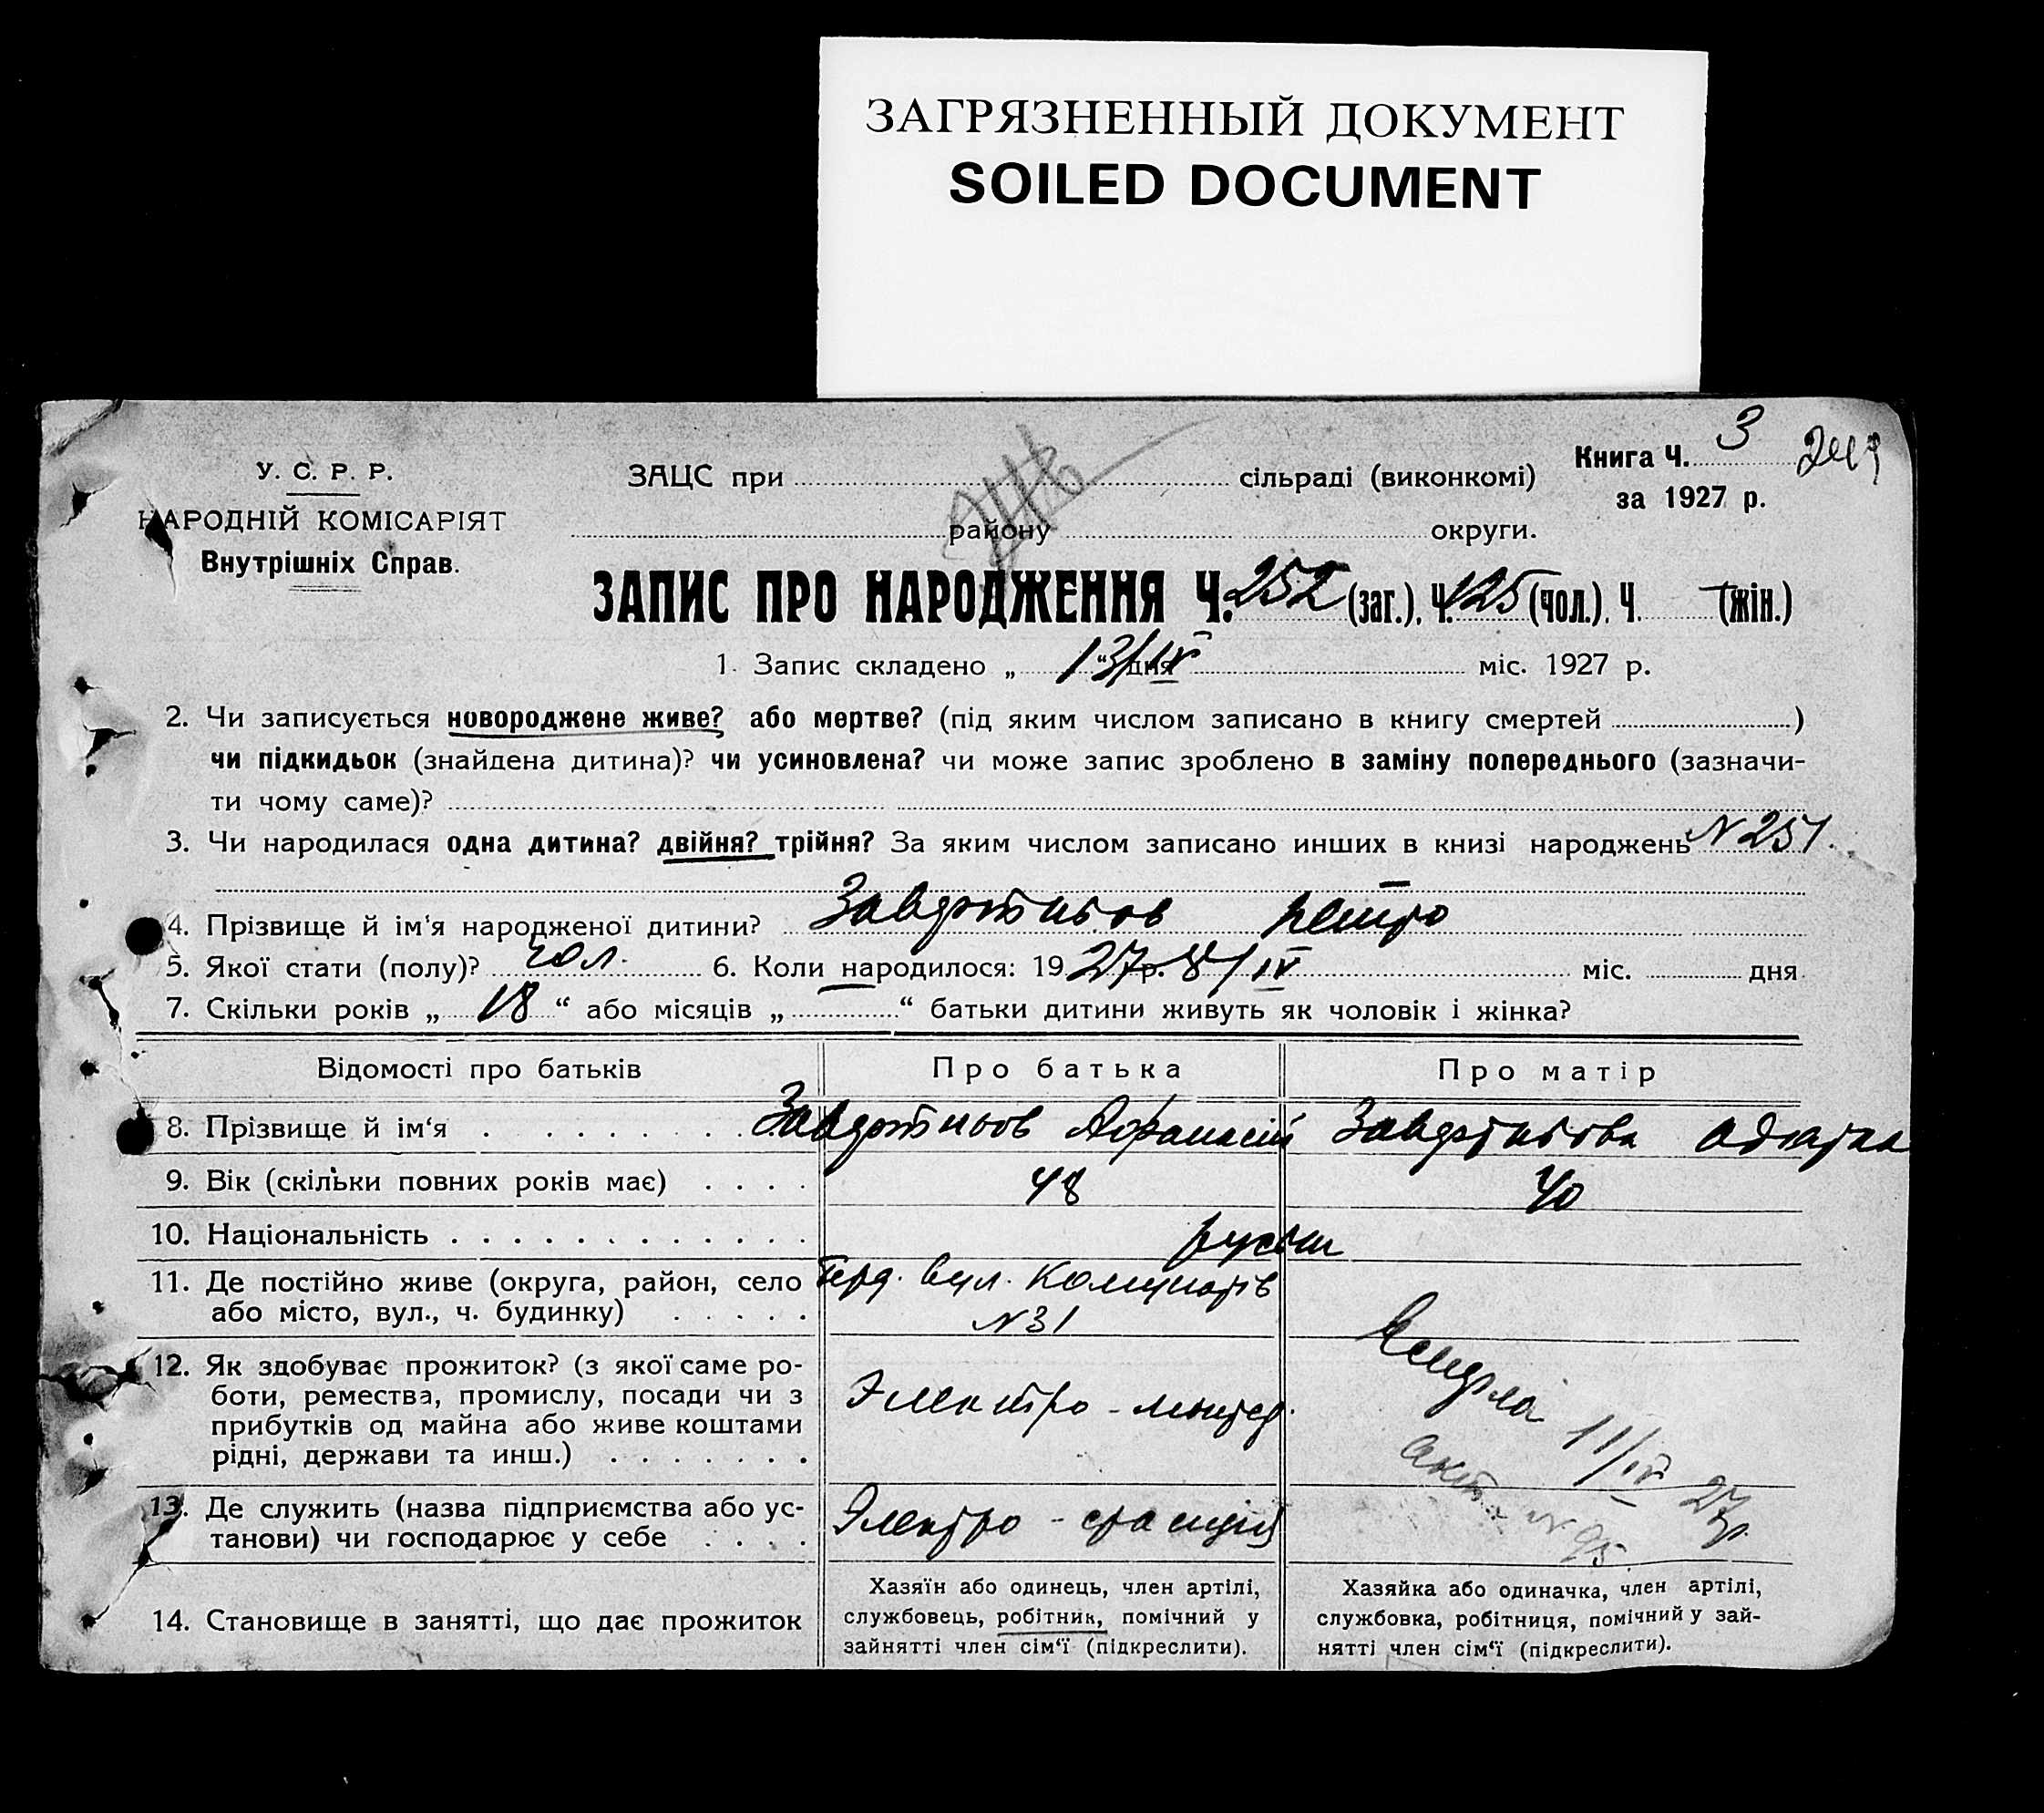 ЗАГРЯЗНЕННЫЙ ДОКУМЕНТ
SOILED DOCUMENT
У. С. Р. Р.
НАРОДНІЙ КОМІСАРІЯТ
Внутрішніх Справ.
ЗАЦС при сільраді (виконкомі)
району округи.
Книга Ч. 3
за 1927 р.
ЗАПИС ПРО НАРОДЖЕННЯ Ч. 252 (заг.), Ч. 125 (чол.), Ч. — (жін.)
1. Запис складено „ 13/IV “ дня міс. 1927 р.
2. Чи записується новороджене живе? або мертве? (під яким числом записано в книгу смертей )
чи підкидьок (знайдена дитина)? чи усиновлена? чи може запис зроблено в заміну попереднього (зазначи-
ти чому саме)?
3. Чи народилася одна дитина? двійня? трійня? За яким числом записано инших в книзі народжень N 251.
4. Прізвище й ім‘я народженої дитини? Петро
5. Якої стати (полу)? чол. 6. Коли народилося: 1927 р. 8/IV міс. дня
7. Скільки років „ 18 “ або місяців „ “ батьки дитини живуть як чоловік і жінка?
Відомості про батьків Про батька Про матір
8. Прізвище й ім‘я Афанасій
9. Вік (скільки повних років має) 48 40
10. Національність
11. Де постійно живе (округа, район, село вул. Комунарів
або місто, вул., ч. будинку) N 31
12. Як здобуває прожиток? (з якої саме ро-
боти, ремества, промислу, посади чи з
прибутків од майна або живе коштами
рідні, держави та инш.)
Электро-монтер.
11/IV 27 р.
акт N 95
13. Де служить (назва підприємства або ус-
танови) чи господарює у себе
Электро-станція
14. Становище в занятті, що дає прожиток
Хазяїн або одинець, член артілі,
службовець, робітник, помічний у
зайнятті член сім‘ї (підкреслити).
Хазяйка або одиначка, член артілі,
службовка, робітниця, помічний у зай-
нятті член сім‘ї (підкреслити).